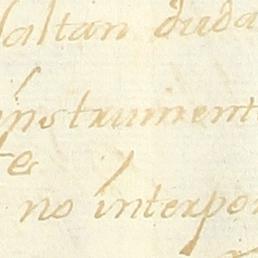 faltan duda
instrument
te
no interpo